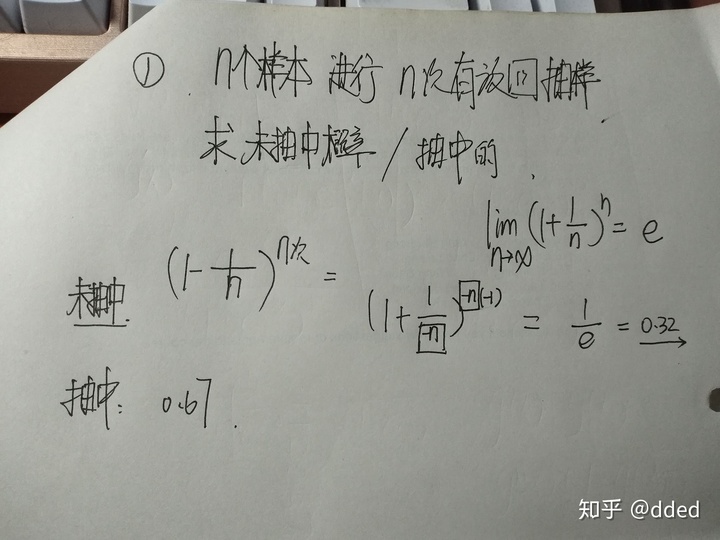 ① n个样本 进行 n次有放回抽样
求 未抽中概率 / 抽中的
lim n→∞ (1+1/n)^n = e
未抽中 (1-1/n)^n次 = (1+1/-n)^-n(-1) = 1/e = 0.32
抽中: 0.67.
知乎 @dded